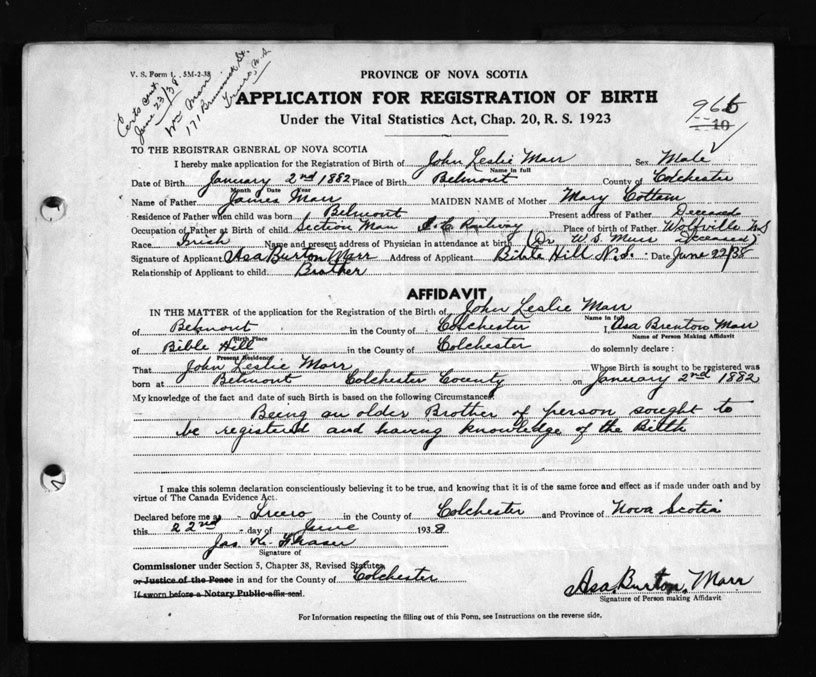 V. S. Form 1. 5M-2-38
Certs sent
June 23/38
Wm Marr
171 Brunswick St.
Truro, N.S.
PROVINCE OF NOVA SCOTIA
APPLICATION FOR REGISTRATION OF BIRTH
Under the Vital Statistics Act, Chap. 20, R. S. 1923
10
TO THE REGISTRAR GENERAL OF NOVA SCOTIA
I hereby make application for the Registration of Birth of John Leslie Marr Sex Male
Name in full
Date of Birth January 2nd 1882 Place of Birth Belmont County of Colchester
Month Date Year
Name of Father James Marr MAIDEN NAME of Mother Mary Cottam
Residence of Father when child was born Belmont Present address of Father Deceased
Occupation of Father at Birth of child Section Man I.C Railway Place of birth of Father Wolfville N S
Race Irish Name and present address of Physician in attendance at birth (Dr W. S. Muir Deceased)
Signature of Applicant Asa Burton Marr Address of Applicant Bible Hill N.S. Date June 22/38
Relationship of Applicant to child Brother
AFFIDAVIT
IN THE MATTER of the application for the Registration of the Birth of John Leslie Marr
Name in full
of Belmont in the County of Colchester Asa Brenton Marr
Birth Place Name of Person Making Affidavit
of Bible Hill in the County of Colchester do solemnly declare :
Present Residence
That John Leslie Marr Whose Birth is sought to be registered was
born at Belmont Colchester County on January 2nd 1882
My knowledge of the fact and date of such Birth is based on the following Circumstances:
Being an older Brother of person sought to
be registered and having knowledge of the Birth
I make this solemn declaration conscientiously believing it to be true, and knowing that it is of the same force and effect as if made under oath and by
virtue of The Canada Evidence Act.
Declared before me at Truro in the County of Colchester and Province of Nova Scotia
this 22nd day of June 1938
Jas. Fraser
Signature of
Commissioner under Section 5, Chapter 38, Revised Statutes,
or Justice of the Peace in and for the County of Colchester
If sworn before a Notary Public affix seal.
Asa Burton Marr
Signature of Person making Affidavit
For Information respecting the filling out of this Form, see Instructions on the reverse side.